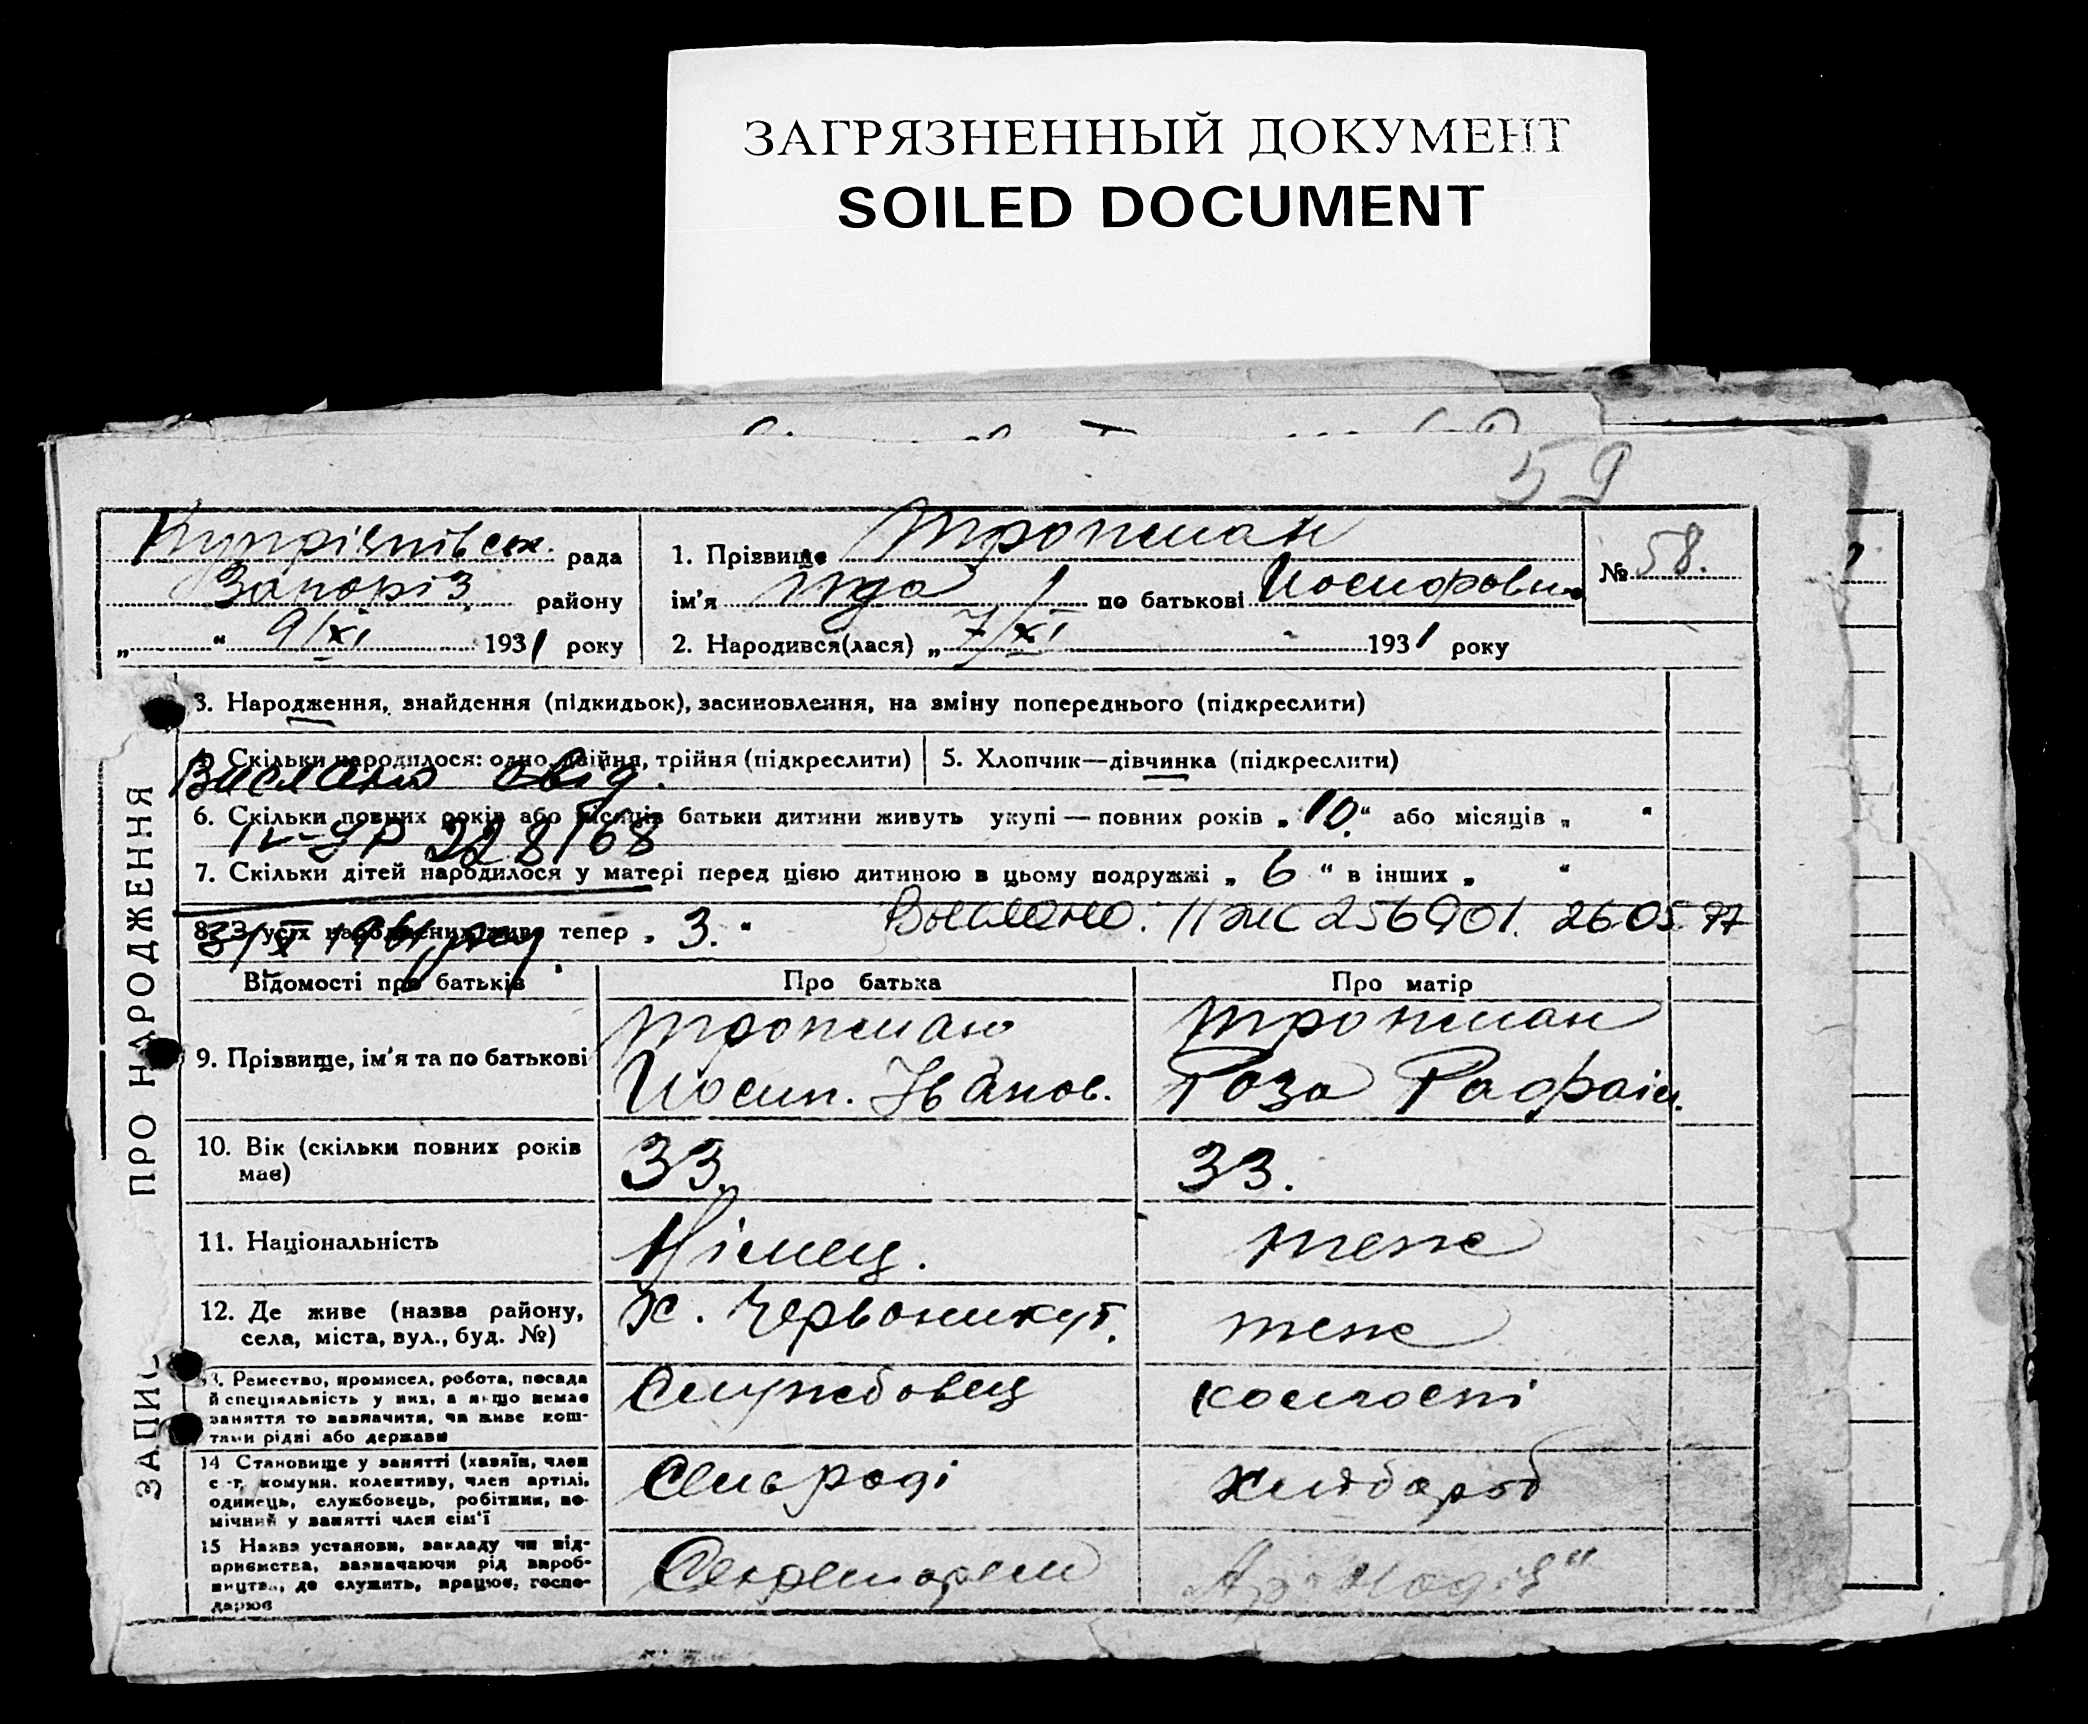 ЗАГРЯЗНЕННЫЙ ДОКУМЕНТ
SOILED DOCUMENT
59
Купріянівськ. рада
Запоріз району
„ “ 9/XI 1931 року
1. Прізвище Тропман
ім'я Іда по батькові Иосифовн.
2. Народився(лася) „ 7/XI 1931 року
№ 58.
ЗАПИС ПРО НАРОДЖЕННЯ
3. Народження, знайдення (підкидьок), засиновлення, на зміну попереднього (підкреслити)
4. Скільки народилося: одно, двійня, трійня (підкреслити)
5. Хлопчик—дівчинка (підкреслити)
Вислано свід.
6. Скільки повних років або місяців батьки дитини живуть укупі — повних років „ 10. “ або місяців „ “
IV-УР 228168
7. Скільки дітей народилося у матері перед цією дитиною в цьому подружжі „ 6 “ в інших „ “
8. З усіх народжених живе тепер „ 3. “
Выслано. II ЖС 256901. 26 05 77
Відомості про батьків
Про батька
Про матір
9. Прізвище, ім'я та по батькові
Тропман
Иосип. Іванов.
Тропман
Роза Рафаіл.
10. Вік (скільки повних років має)
33.
33.
11. Національність
Німец.
теж
12. Де живе (назва району, села, міста, вул., буд. №)
Х. Червоникут.
теж
13. Ремество, промисел, робота, посада
й спеціяльність у них, а якщо немає
заняття то зазначити, чи живе кош-
тами рідні або держави
Службовец
14 Становище у занятті (хазяїн, член
с.-г. комуни, колективу, член артілі,
одинець, службовець, робітник, по-
мічний у занятті член сім'ї
Сільраді
хлібороб
15 Назва установи, закладу чи під-
приємства, зазначаючи рід вироб-
ництва, де служить, працює, госпо-
дарює
Секретарем